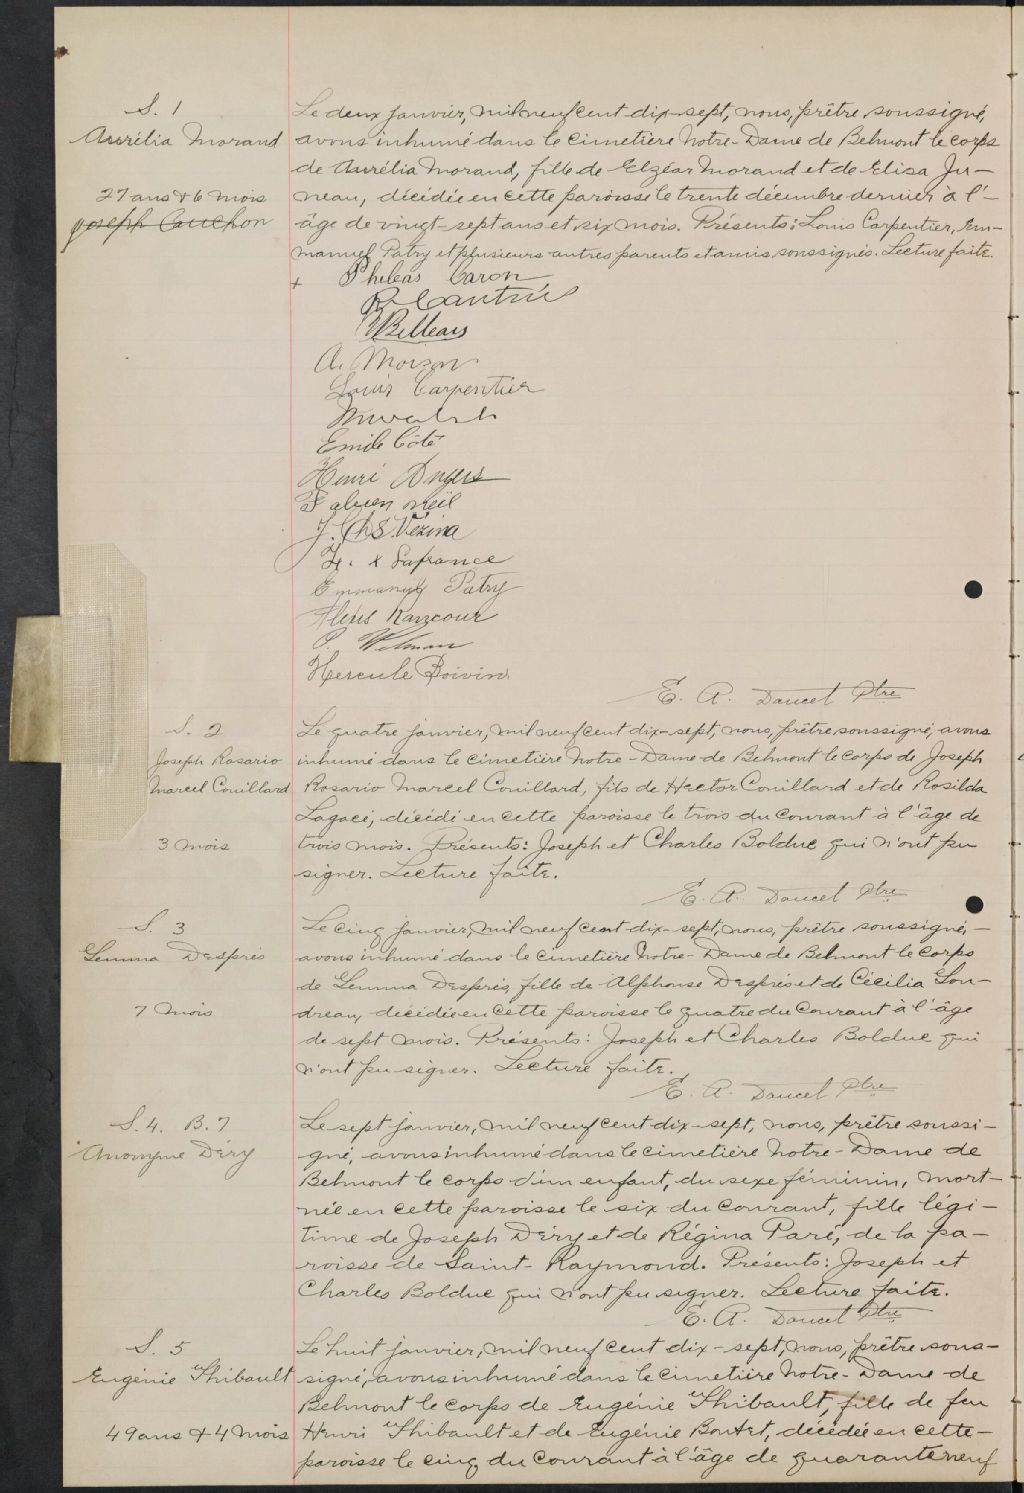 S. 1
Aurélia Morand
27 ans & 6 mois
Joseph Cauchon
Le deux janvier, mil neuf cent dix-sept, nous, prêtre soussigné,
avons inhumé dans le cimetière Notre-Dame de Belmont le corps
de Aurélia Morand, fille de Elzéar Morand et de Elisa Ju-
neau, décédée en cette paroisse le trente décembre dernier à l'-
âge de vingt-sept ans et six mois. Présents: Louis Carpentier, Em-
manuel Patry et plusieurs autres parents et amis soussignés. Lecture faite.
+ Philéas Caron
R Cantin
A. Moison
Louis Carpentier
Emile Côté
Henri Angers
Fabien
J. Chs. Vézina
x Lafrance
Emmanuel Patry
Hercule Boivin
E. A. Doucet Ptre
S. 2
Joseph Rosario
Marcel Couillard
3 mois
Le quatre janvier, mil neuf cent dix-sept, nous, prêtre soussigné, avons
inhumé dans le cimetière Notre-Dame de Belmont le corps de Joseph
Rosario Marcel Couillard, fils de Hector Couillard et de Rosilda
Lagacé, décédé en cette paroisse le trois du courant à l'âge de
trois mois. Présents: Joseph et Charles Bolduc qui n'ont pu
signer. Lecture faite.
E. A. Doucet Ptre
S. 3
Gemma Després
7 mois
Le cinq janvier, mil neuf cent dix-sept, nous, prêtre soussigné,-
avons inhumé dans le cimetière Notre-Dame de Belmont le corps
de Gemma Després, fille de Alphonse Després et de Cécilia Gou-
dreau, décédée en cette paroisse le quatre du courant à l'âge
de sept mois. Présents: Joseph et Charles Bolduc qui
n'ont pu signer. Lecture faite.
E. A. Doucet Ptre
S. 4. B. 7
Anonyme Déry
Le sept janvier, mil neuf cent dix-sept, nous, prêtre soussi-
gné, avons inhumé dans le cimetière Notre-Dame de
Belmont le corps d'un enfant, du sexe féminin, mort-
née en cette paroisse le six du courant, fille légi-
time de Joseph Déry et de Régina Paré, de la pa-
roisse de Saint-Raymond. Présents: Joseph et
Charles Bolduc qui n'ont pu signer. Lecture faite.
E. A. Doucet Ptre
S. 5
Eugénie Thibault
49 ans & 4 mois
Le huit janvier, mil neuf cent dix-sept, nous, prêtre sous-
signé, avons inhumé dans le cimetière Notre-Dame de
Belmont le corps de Eugénie Thibault, fille de feu
Henri Thibault et de Eugénie Boutet, décédée en cette-
paroisse le cinq du courant à l'âge de quarante neuf